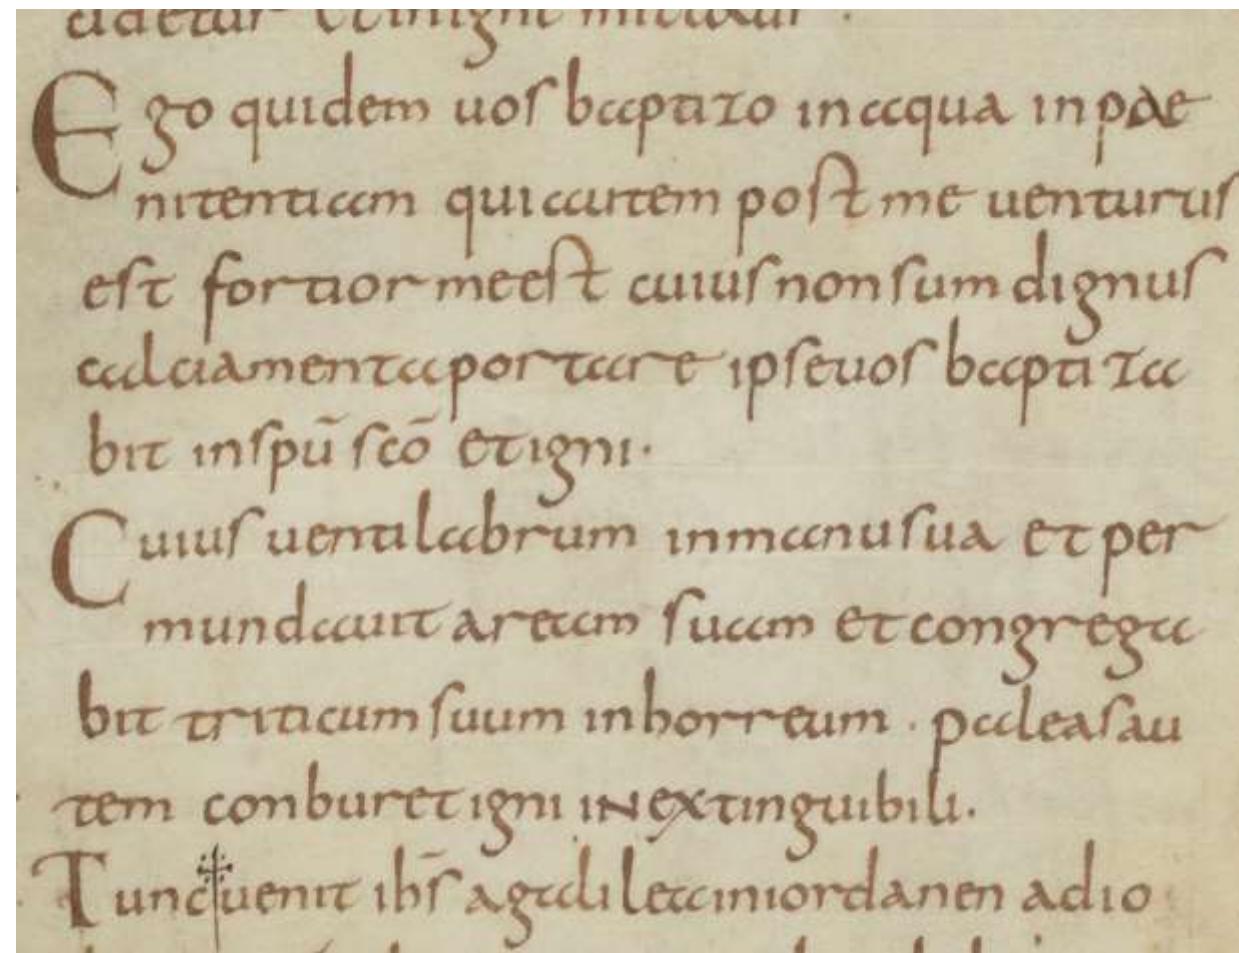 cidetur et inignem mittetur ·
Ego quidem uos baptizo inaqua inpae
nitentiam quiautem post me uenturus
est fortior meest cuius non sum dignus
calciamenta portare ipseuos baptiza
bit inspū scō et igni·
Cuius uentilabrum inmanu sua et per
mundauit aream suam et congrega
bit triticum suum inhorreum · paleasau
tem conburet igni inextinguibili·
Tunc uenit ihs̄ agalileainiordanen adio